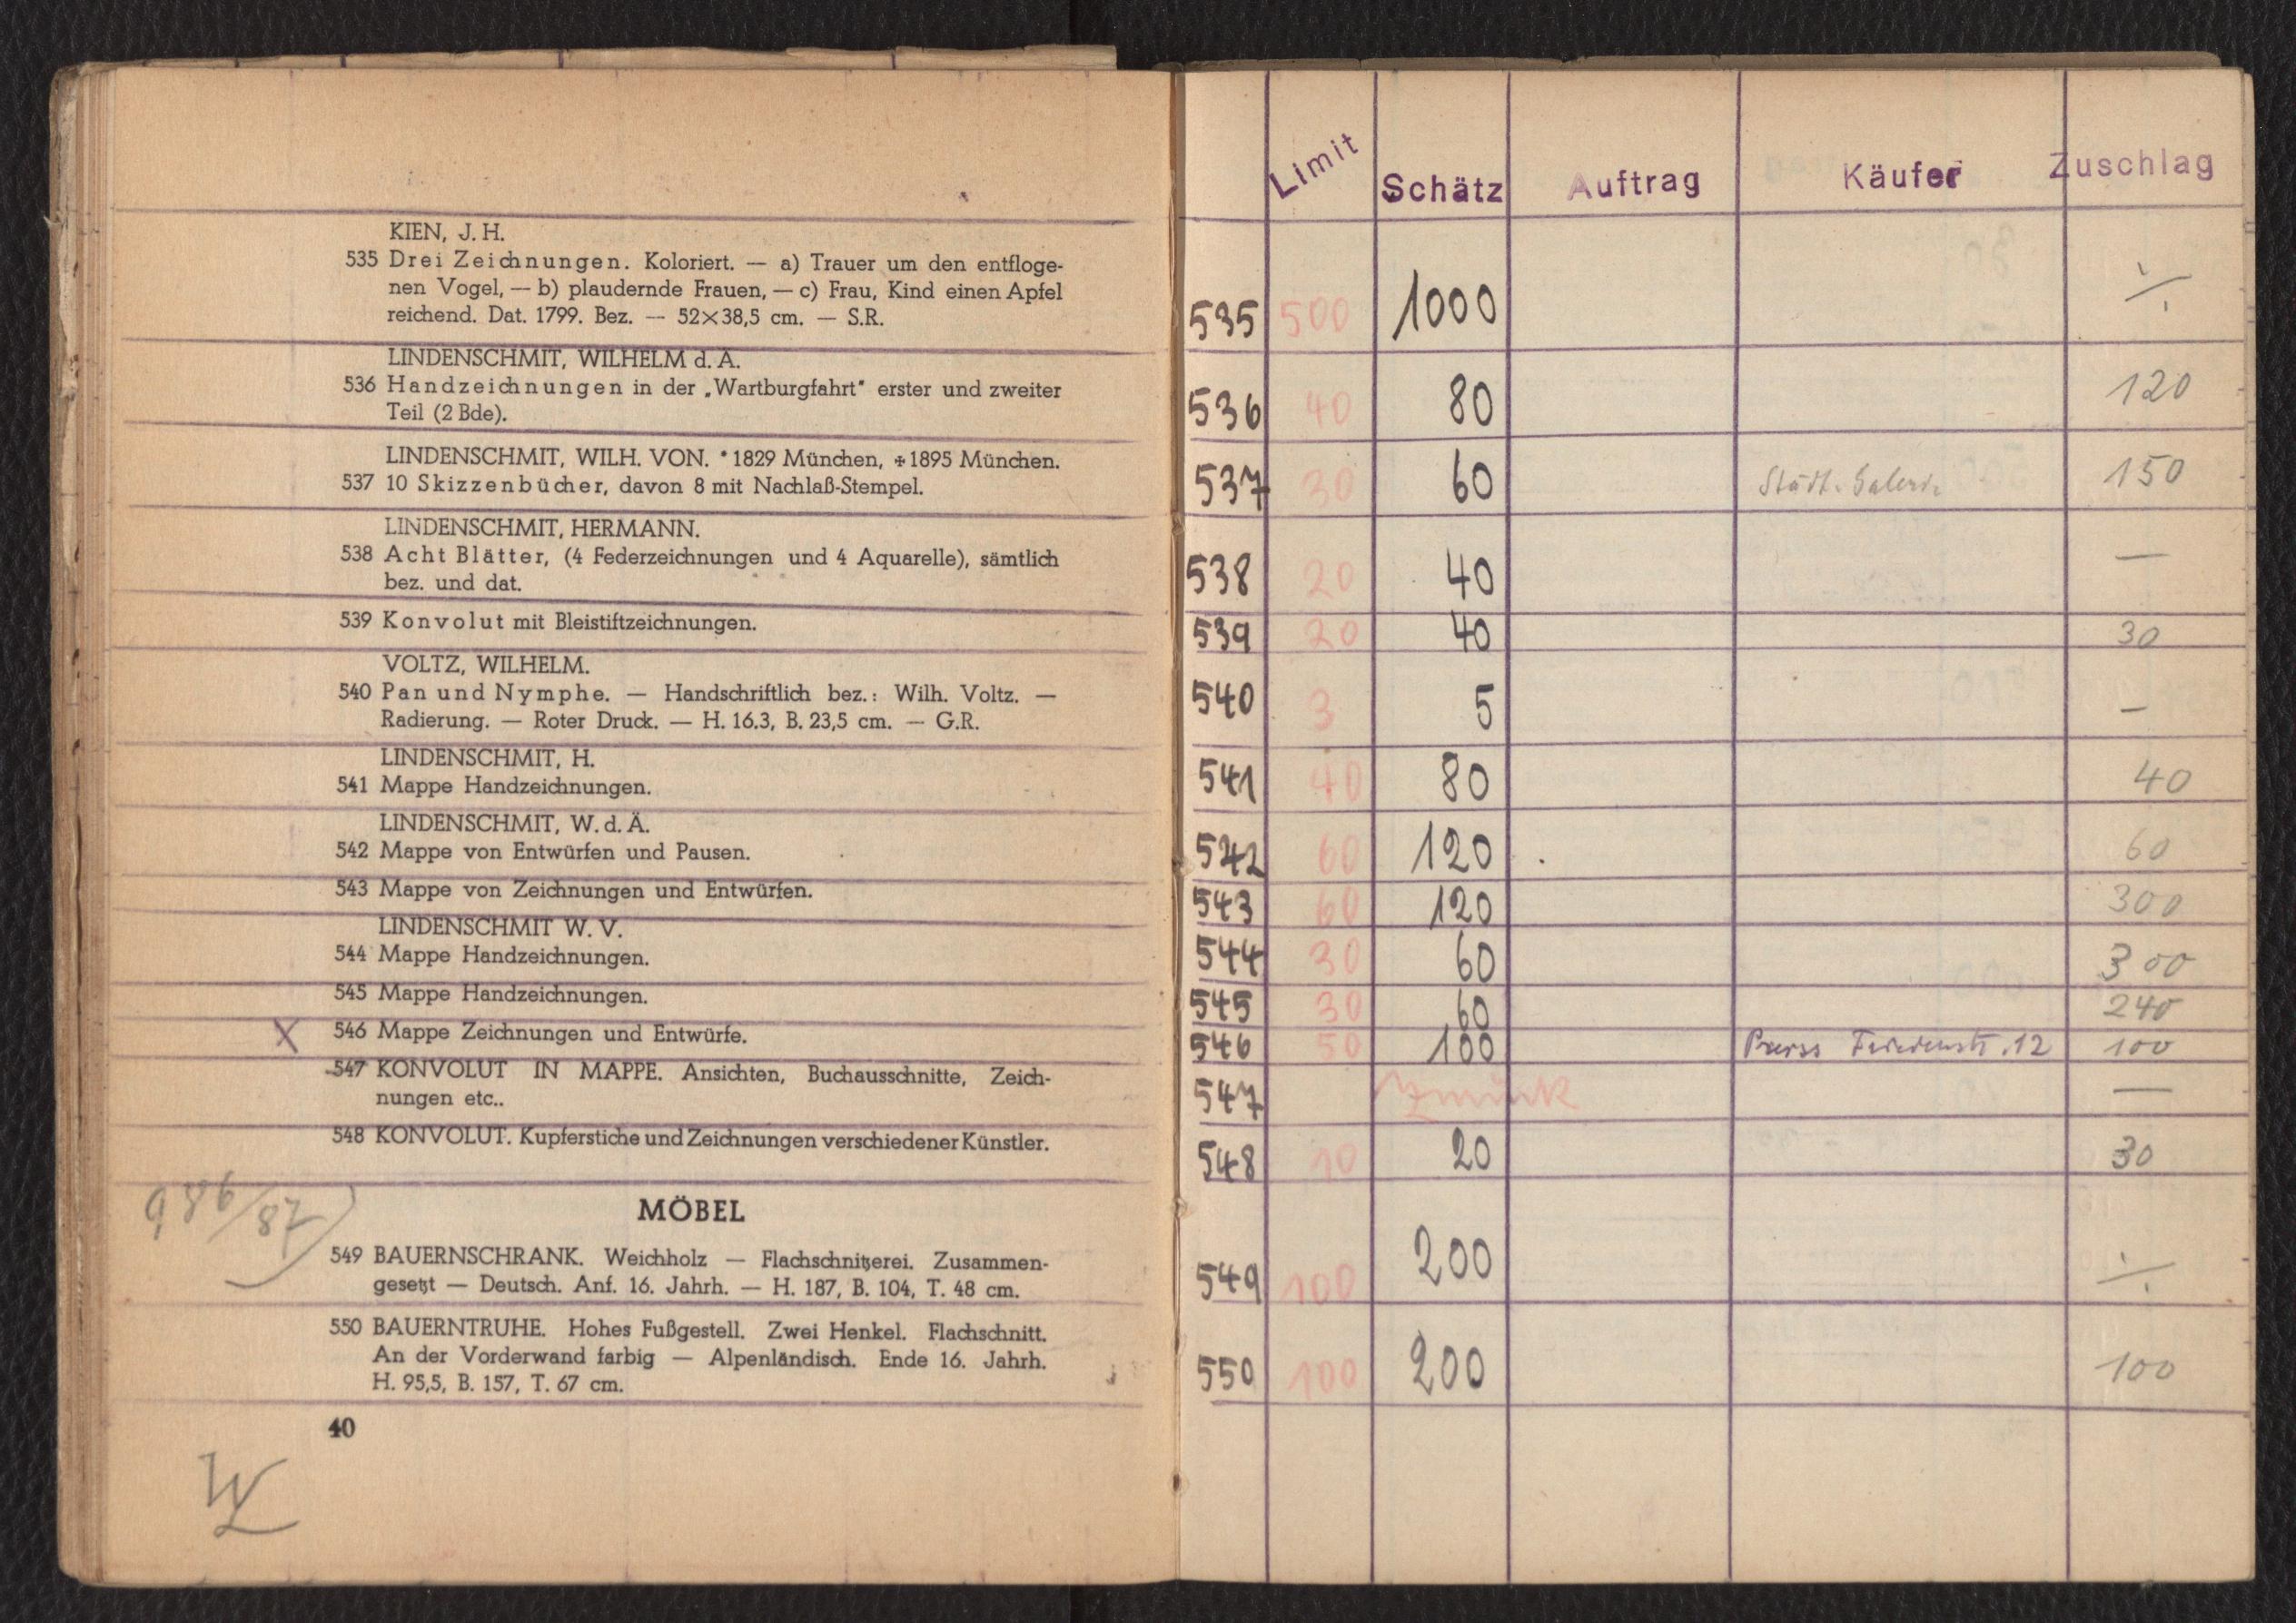 KIEN, J. H.
535 Drei Zeichnungen. Koloriert. — a) Trauer um den entfloge-
nen Vogel, — b) plaudernde Frauen, — c) Frau, Kind einen Apfel
reichend. Dat. 1799. Bez. — 52×38,5 cm. — S.R.
LINDENSCHMIT, WILHELM d. Ä.
536 Handzeichnungen in der „Wartburgfahrt" erster und zweiter
Teil (2 Bde).
LINDENSCHMIT, WILH. VON. * 1829 München, ✠ 1895 München.
537 10 Skizzenbücher, davon 8 mit Nachlaß-Stempel.
LINDENSCHMIT, HERMANN.
538 Acht Blätter, (4 Federzeichnungen und 4 Aquarelle), sämtlich
bez. und dat.
539 Konvolut mit Bleistiftzeichnungen.
VOLTZ, WILHELM.
540 Pan und Nymphe. — Handschriftlich bez.: Wilh. Voltz. —
Radierung. — Roter Druck. — H. 16,3, B. 23,5 cm. — G.R.
LINDENSCHMIT, H.
541 Mappe Handzeichnungen.
LINDENSCHMIT, W. d. Ä.
542 Mappe von Entwürfen und Pausen.
543 Mappe von Zeichnungen und Entwürfen.
LINDENSCHMIT W. V.
544 Mappe Handzeichnungen.
545 Mappe Handzeichnungen.
X 546 Mappe Zeichnungen und Entwürfe.
547 KONVOLUT IN MAPPE. Ansichten, Buchausschnitte, Zeich-
nungen etc..
548 KONVOLUT. Kupferstiche und Zeichnungen verschiedener Künstler.
986/87
MÖBEL
549 BAUERNSCHRANK. Weichholz — Flachschnitzerei. Zusammen-
gesetzt — Deutsch. Anf. 16. Jahrh. — H. 187, B. 104, T. 48 cm.
550 BAUERNTRUHE. Hohes Fußgestell. Zwei Henkel. Flachschnitt.
An der Vorderwand farbig — Alpenländisch. Ende 16. Jahrh.
H. 95,5, B. 157, T. 67 cm.
40
Limit Schätz Auftrag Käufer Zuschlag
535 500 1000 ·/·
536 40 80 120
537 30 60 Städt. Galerie 150
538 20 40 —
539 20 40 30
540 3 5 —
541 40 80 40
542 60 120 60
543 60 120 300
544 30 60 300
545 30 60 240
546 50 100 12 100
547 zurück —
548 10 20 30
549 100 200 ·/·
550 100 200 100